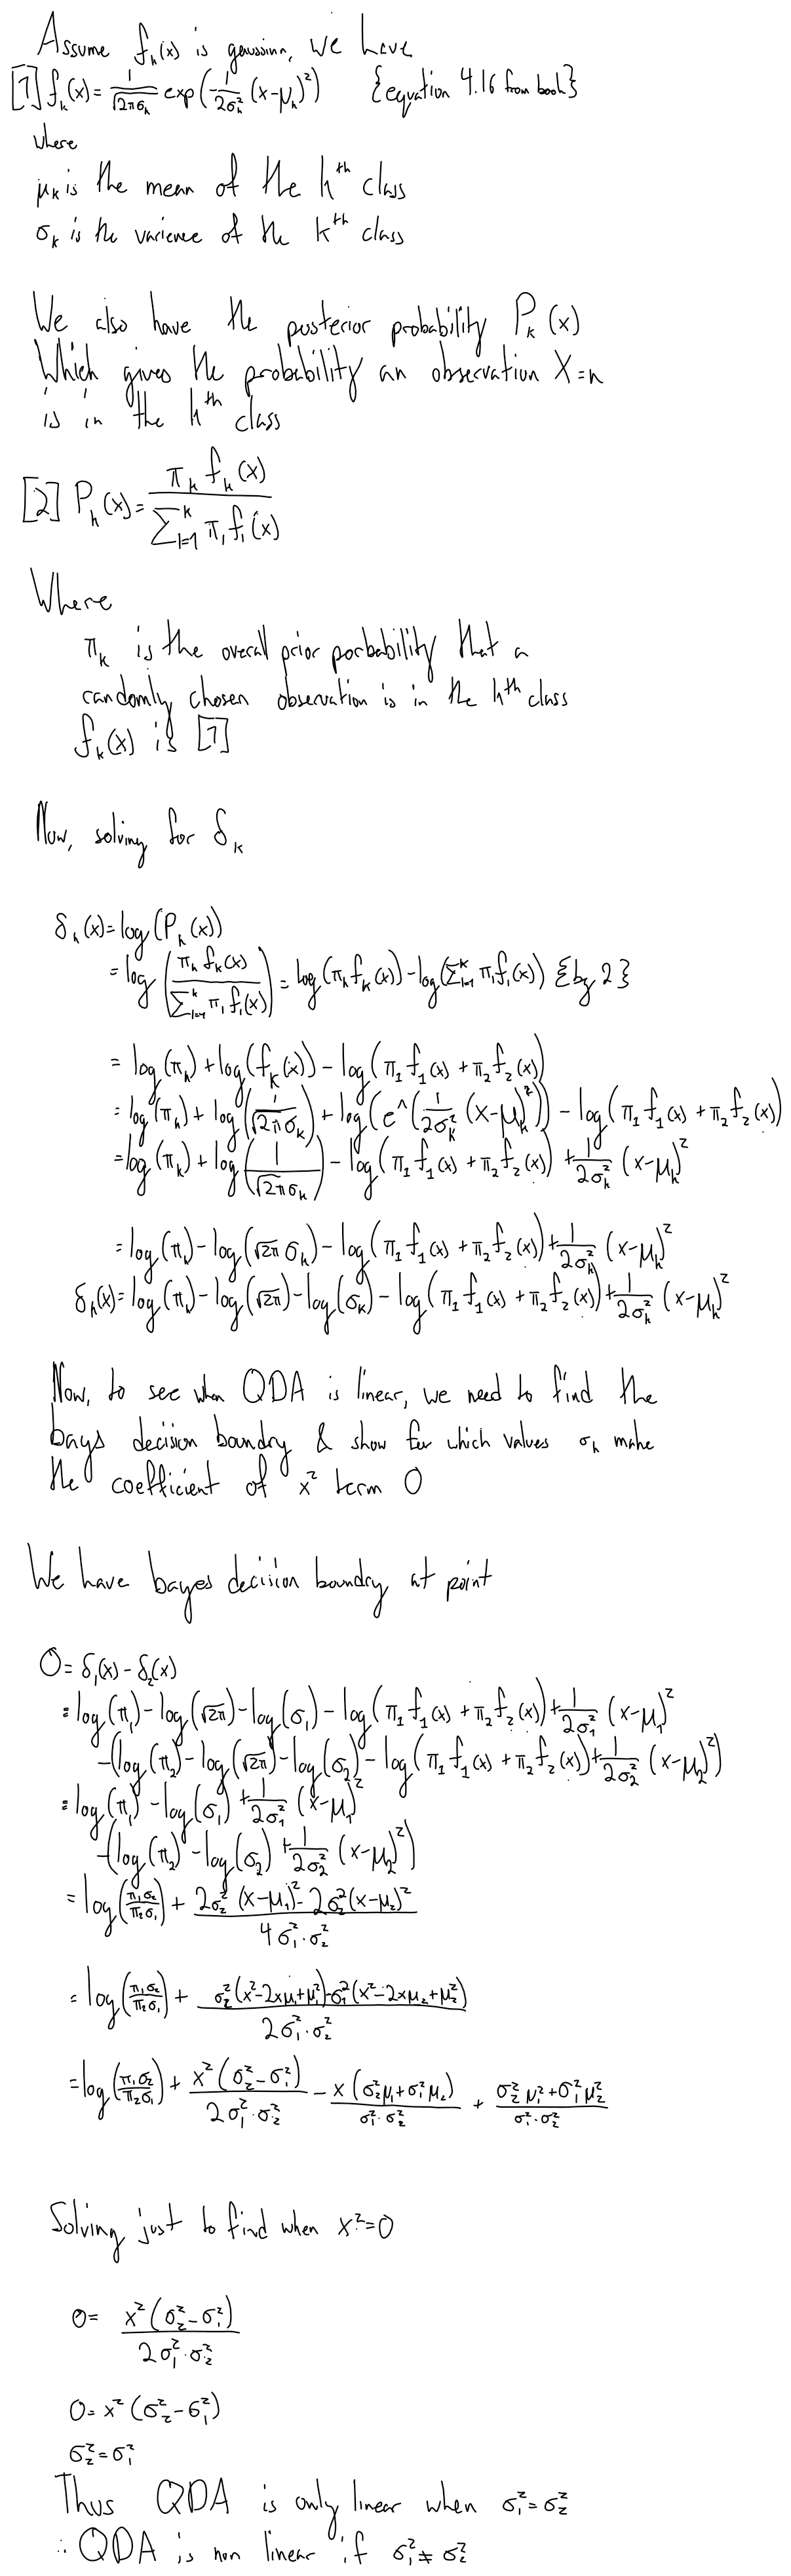 Assume f_k(x) is gaussian, we have
[1] f_k(x) = 1/(√(2π)σ_k) exp(-1/(2σ_k²) (x-μ_k)²) {equation 4.16 from book}
where
μ_k is the mean of the k^th class
σ_k is the varience of the k^th class
We also have the posterior probability P_k(x)
Which gives the probability an observation X=x
is in the k^th class
[2] P_k(x) = π_k f_k(x) / Σ_{l=1}^k π_l f_l(x)
Where
π_k is the overall prior porbability that a
randomly chosen observation is in the k^th class
f_k(x) is [1]
Now, solving for δ_k
δ_k(x) = log(P_k(x))
= log(π_k f_k(x) / Σ_{l=1}^k π_l f_l(x)) = log(π_k f_k(x)) - log(Σ_{l=1}^k π_l f_l(x)) {by 2}
= log(π_k) + log(f_k(x)) - log(π_1 f_1(x) + π_2 f_2(x))
= log(π_k) + log(1/(√(2π)σ_k)) + log(e^(1/(2σ_k²) (x-μ_k)²)) - log(π_1 f_1(x) + π_2 f_2(x))
= log(π_k) + log(1/(√(2π)σ_k)) - log(π_1 f_1(x) + π_2 f_2(x)) + 1/(2σ_k²) (x-μ_k)²
= log(π_k) - log(√(2π) σ_k) - log(π_1 f_1(x) + π_2 f_2(x)) + 1/(2σ_k²) (x-μ_k)²
δ_k(x) = log(π_k) - log(√(2π)) - log(σ_k) - log(π_1 f_1(x) + π_2 f_2(x)) + 1/(2σ_k²) (x-μ_k)²
Now, to see when QDA is linear, we need to find the
bays decision boundry & show for which values σ_k make
the coefficient of x² term 0
We have bayes decision boundry at point
0 = δ_1(x) - δ_2(x)
= log(π_1) - log(√(2π)) - log(σ_1) - log(π_1 f_1(x) + π_2 f_2(x)) + 1/(2σ_1²) (x-μ_1)²
-(log(π_2) - log(√(2π)) - log(σ_2) - log(π_1 f_1(x) + π_2 f_2(x)) + 1/(2σ_2²) (x-μ_2)²)
= log(π_1) - log(σ_1) + 1/(2σ_1²) (x-μ_1)²
-(log(π_2) - log(σ_2) + 1/(2σ_2²) (x-μ_2)²)
= log(π_1σ_2/π_2σ_1) + (2σ_2² (x-μ_1)² - 2σ_2² (x-μ_2)²) / (4σ_1²·σ_2²)
= log(π_1σ_2/π_2σ_1) + (σ_2²(x²-2xμ_1+μ_1²) - σ_1²(x²-2xμ_2+μ_2²)) / (2σ_1²·σ_2²)
= log(π_1σ_2/π_2σ_1) + x²(σ_2²-σ_1²)/(2σ_1²·σ_2²) - x(σ_2²μ_1+σ_1²μ_2)/(σ_1²·σ_2²) + (σ_2²μ_1²+σ_1²μ_2²)/(σ_1²·σ_2²)
Solving just to find when x²=0
0 = x²(σ_2²-σ_1²) / (2σ_1²·σ_2²)
0 = x²(σ_2²-σ_1²)
σ_2² = σ_1²
Thus QDA is only linear when σ_1² = σ_2²
∴ QDA is non linear if σ_1² ≠ σ_2²